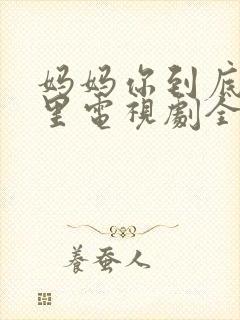 妈妈你到底
里電視劇全
養蚕人